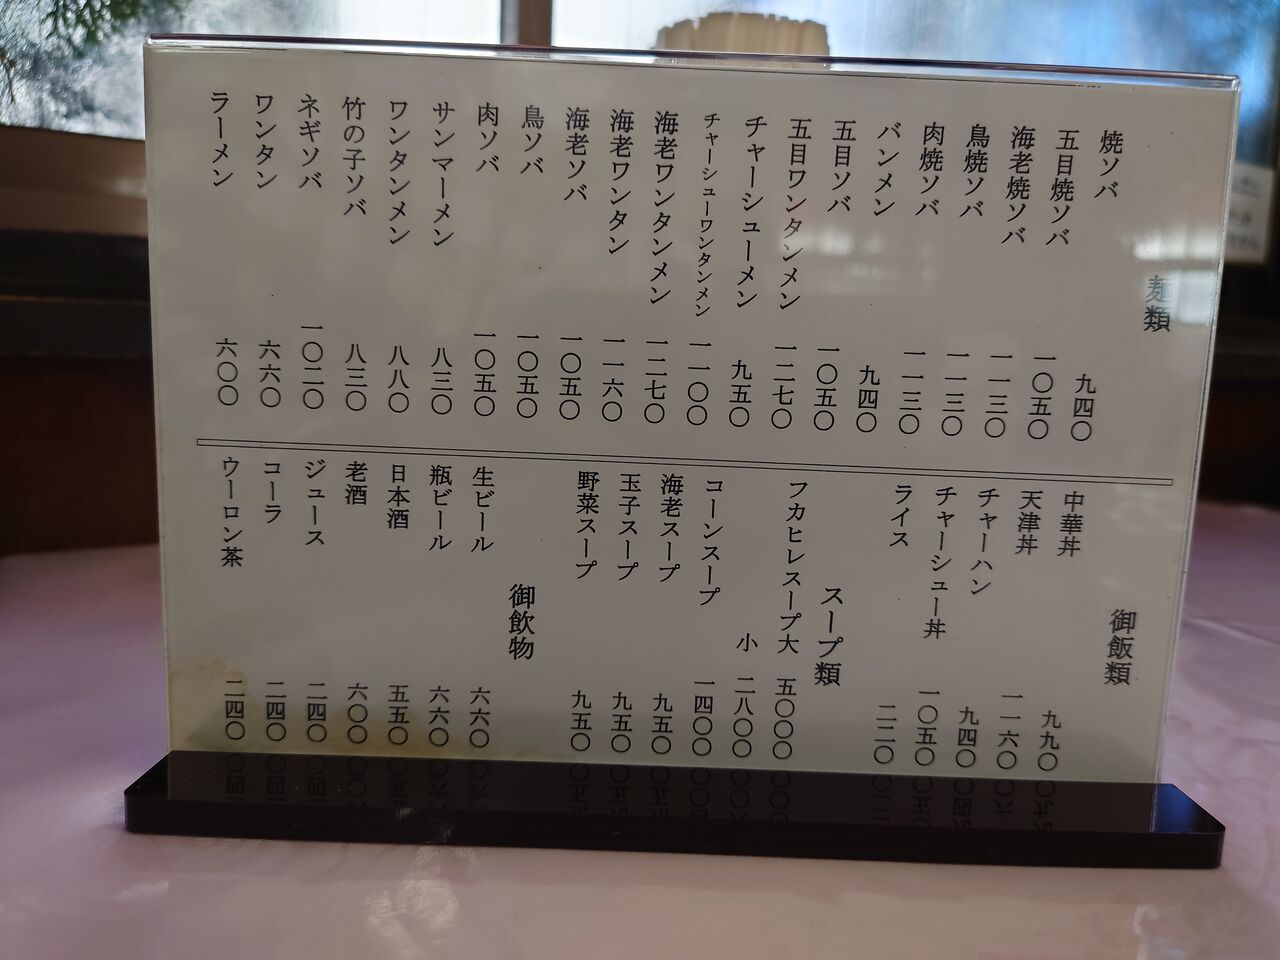 麺類
焼ソバ 九四〇
五目焼ソバ 一〇五〇
海老焼ソバ 一一三〇
鳥焼ソバ 一一三〇
肉焼ソバ 一一三〇
バンメン 九四〇
五目ソバ 一〇五〇
五目ワンタンメン 一二七〇
チャーシューメン 九五〇
チャーシューワンタンメン 一一〇〇
海老ワンタンメン 一二七〇
海老ワンタン 一一六〇
海老ソバ 一〇五〇
鳥ソバ 一〇五〇
肉ソバ 一〇五〇
サンマーメン 八三〇
ワンタンメン 八八〇
竹の子ソバ 八三〇
ネギソバ 一〇二〇
ワンタン 六六〇
ラーメン 六〇〇
御飯類
中華丼 九九〇
天津丼 一一六〇
チャーハン 九四〇
チャーシュー丼 一〇五〇
ライス 二二〇
スープ類
フカヒレスープ大 五〇〇〇
小 二八〇〇
コーンスープ 一四〇〇
海老スープ 九五〇
玉子スープ 九五〇
野菜スープ 九五〇
御飲物
生ビール 六六〇
瓶ビール 六六〇
日本酒 五五〇
老酒 六〇〇
ジュース 二四〇
コーラ 二四〇
ウーロン茶 二四〇